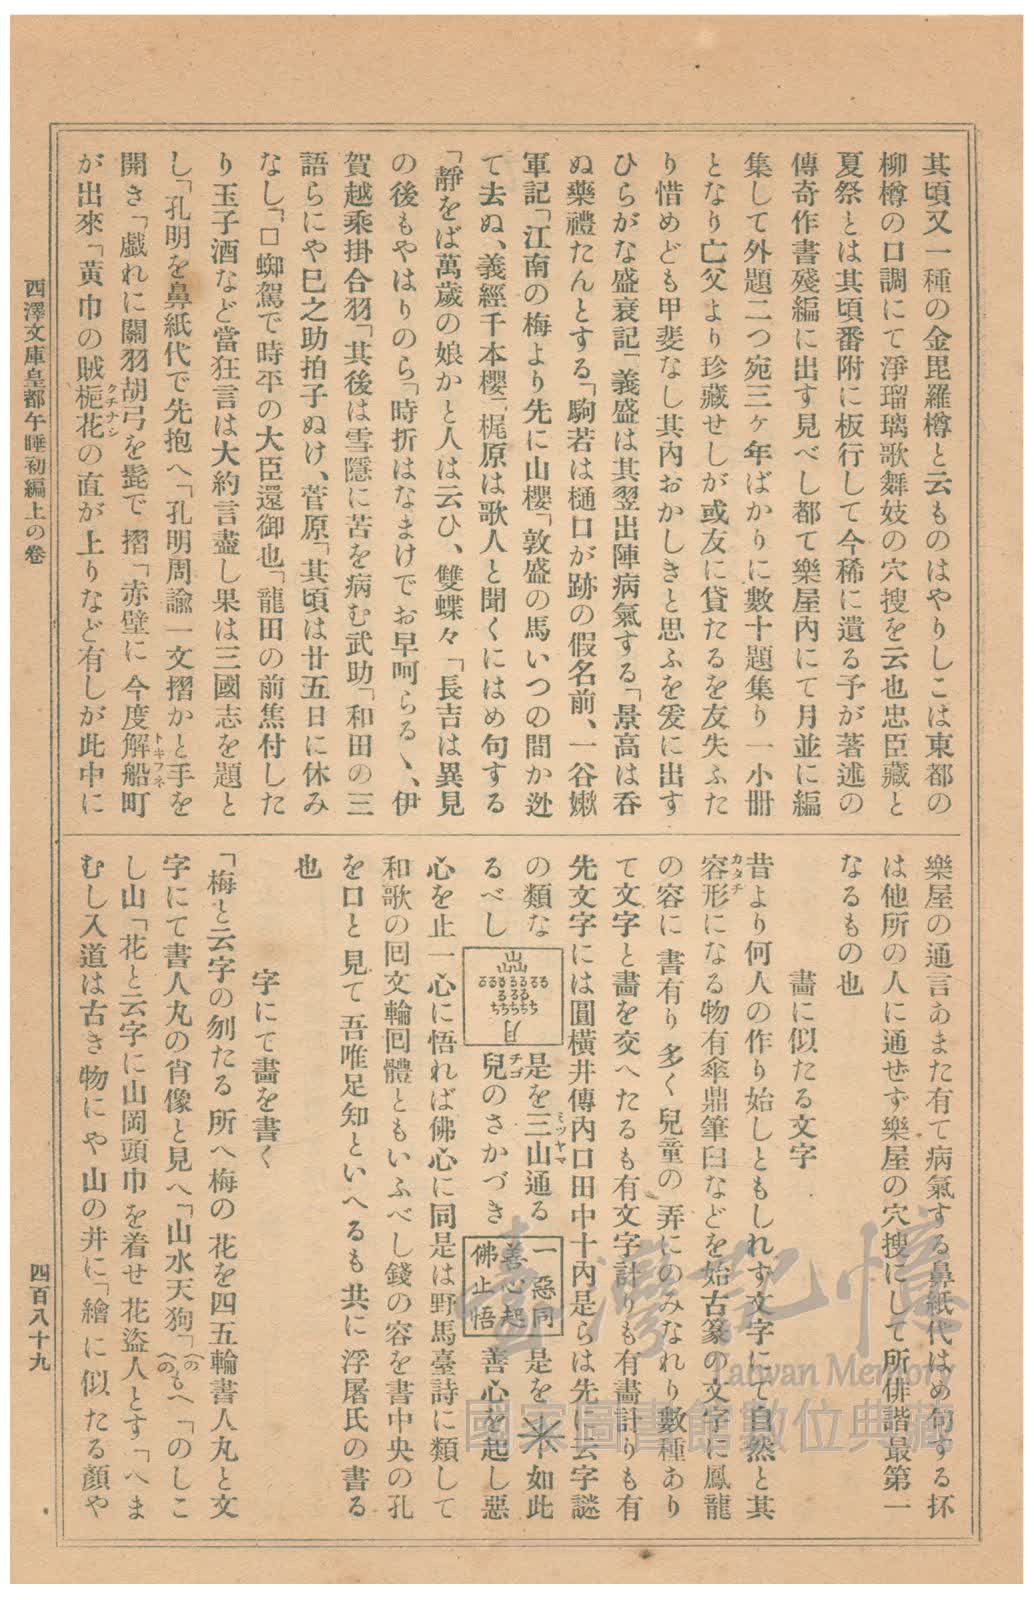 其頃又一種の金毘羅樽と云ものはやりしこは東都の
柳樽の口調にて淨瑠璃歌舞妓の穴搜を云也忠臣藏と
夏祭とは其頃番附に板行して今稀に遺る予が著述の
傳奇作書殘編に出す見べし都て樂屋內にて月並に編
集して外題二つ宛三ヶ年ばかりに數十題集り一小冊
となり亡父より珍藏せしが或友に貸たるを友失ふた
り惜めども甲斐なし其內おかしきと思ふを爰に出す
ひらがな盛衰記「義盛は其翌出陣病氣する「景高は呑
ぬ藥禮たんとする「駒若は樋口が跡の假名前、一谷嫰
軍記「江南の梅より先に山櫻「敦盛の馬いつの間か迯
て去ぬ、義經千本櫻「梶原は歌人と聞くにはめ句する
「靜をば萬歲の娘かと人は云ひ、雙蝶々「長吉は異見
の後もやはりのら「時折はなまけでお早呵らるゝ、伊
賀越乘掛合羽「其後は雪隱に苦を病む武助「和田の三
語らにや巳之助拍子ぬけ、菅原「其頃は廿五日に休み
なし「□蜘駕で時平の大臣還御也「龍田の前焦付した
り玉子酒など當狂言は大約言盡し果は三國志を題と
し「孔明を鼻紙代で先抱へ「孔明周諭一文摺かと手を
開き「戱れに關羽胡弓を髭で摺「赤壁に今度解船町
トキフネ
が出來「黃巾の賊梔花の直が上りなど有しが此中に
クチナシ
樂屋の通言あまた有て病氣する鼻紙代はめ句する抔
は他所の人に通せず樂屋の穴搜にして所俳諧最第一
なるもの也
畵に似たる文字
昔より何人の作り始しともしれす文字にて自然と其
容形になる物有傘鼎筆臼などを始古篆の文字に鳳龍
カタチ
の容に書有り多く兒童の弄にのみなれり數種あり
て文字と畵を交へたるも有文字計りも有畵計りも有
先文字には圓橫井傳內口田中十內是らは先に云字謎
の類な
るべし
山山山
るるるるるるる
るるる
ちちちちち
月
是を三山通る
ミツヤマ
兒のさかづき
チゴ
一惡同
善心起
佛止悟
是を
如此
善心を起し惡
心を止一心に悟れば佛心に同是は野馬臺詩に類して
和歌の囘文輪回體ともいふべし錢の容を書中央の孔
を口と見て吾唯足知といへるも共に浮屠氏の書る
也
字にて畵を書く
「梅と云字の刎たる所へ梅の花を四五輪書人丸と文
字にて書人丸の肖像と見へ「山水天狗「へのもへ「のしこ
へのし
し山「花と云字に山岡頭巾を着せ花盜人とす「へま
むし入道は古き物にや山の井に「繪に似たる顏や
西澤文庫皇都午睡初編上の卷
四百八十九
臺灣記憶
Taiwan Memory
國家圖書館數位典藏